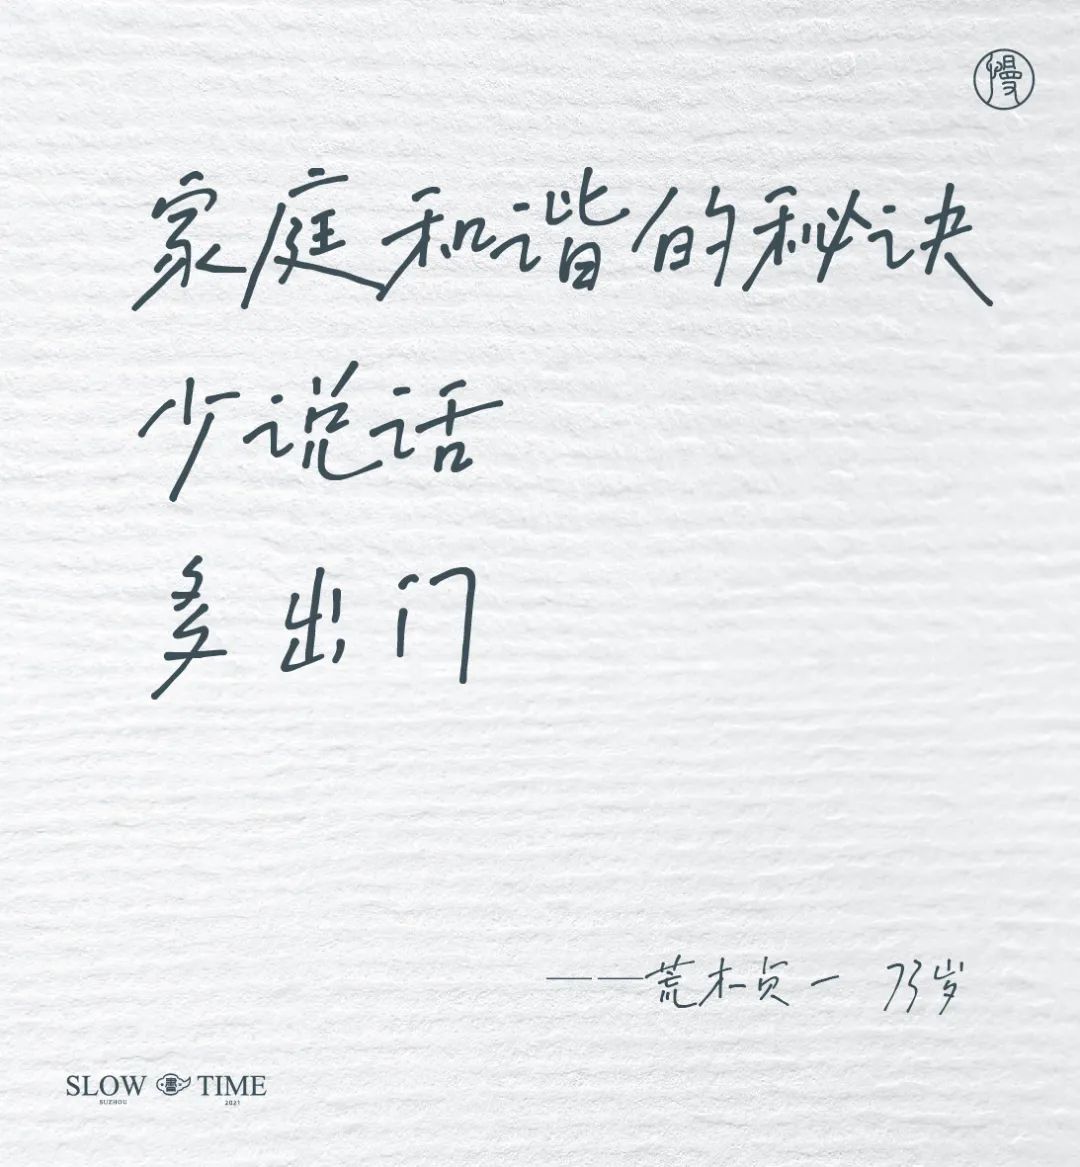 慢
家庭和谐的秘诀
少说话
多出门
——荒木贞一 73岁
SLOW TIME
SUZHOU 2021